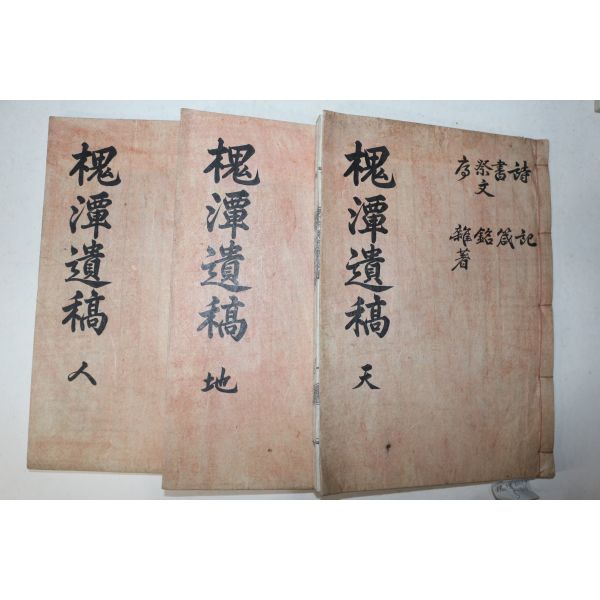 詩 記
書 箴
祭文 銘
序 雜著
槐潭遺稿 天
槐潭遺稿 地
槐潭遺稿 人